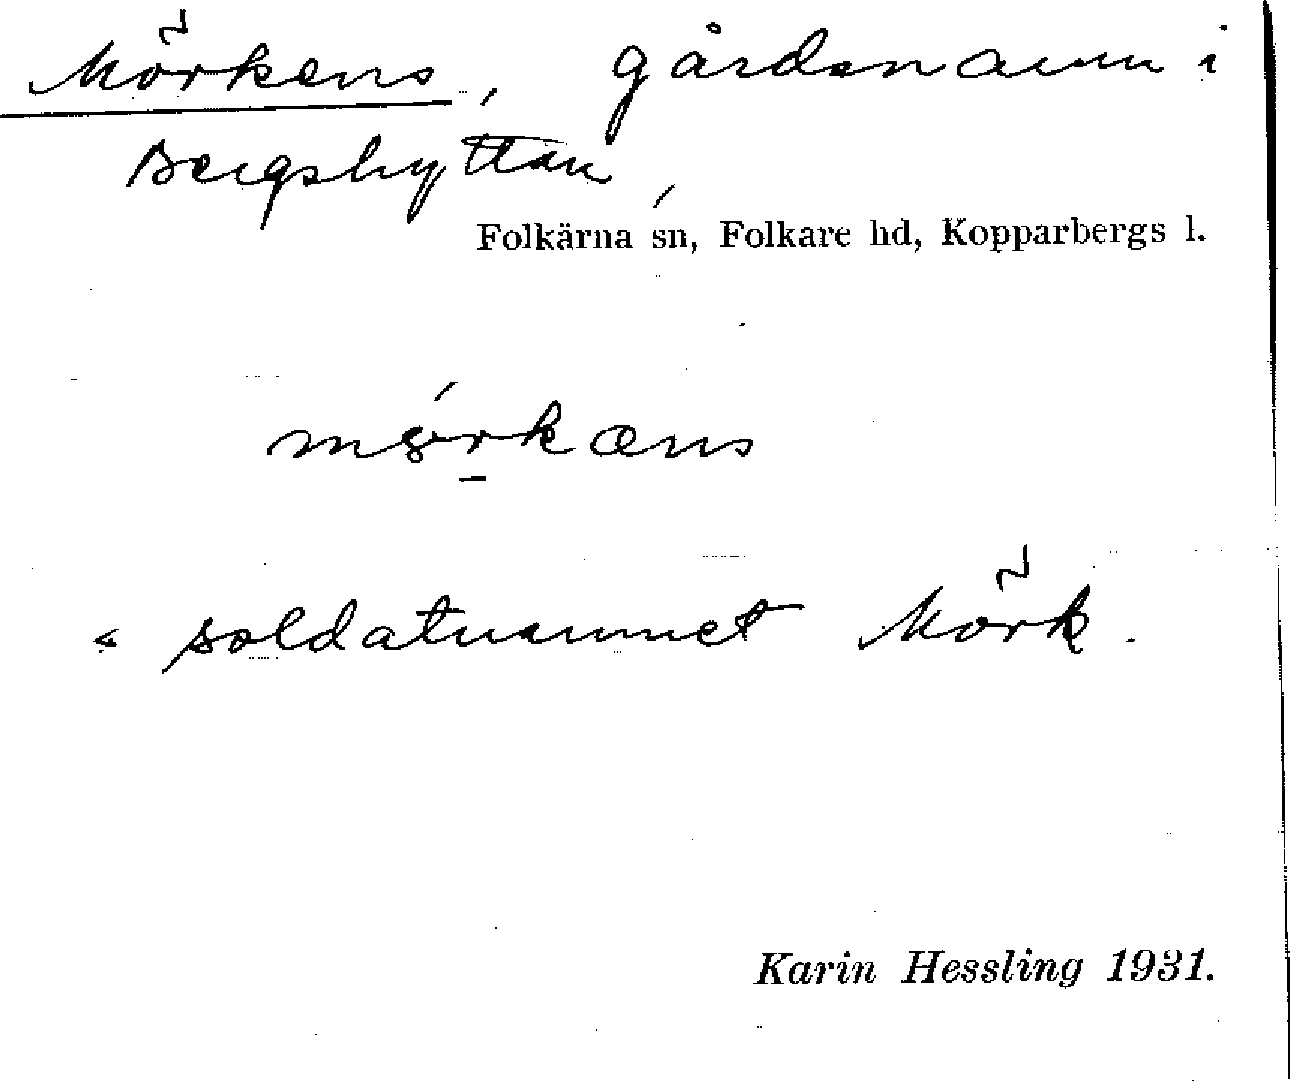 Mörkens, gårdsnamn i
Bergshyttan,
Folkärna sn, Folkare hd, Kopparbergs l.
mörkæns
< soldatnamnet Mörk.
Karin Hessling 1931.